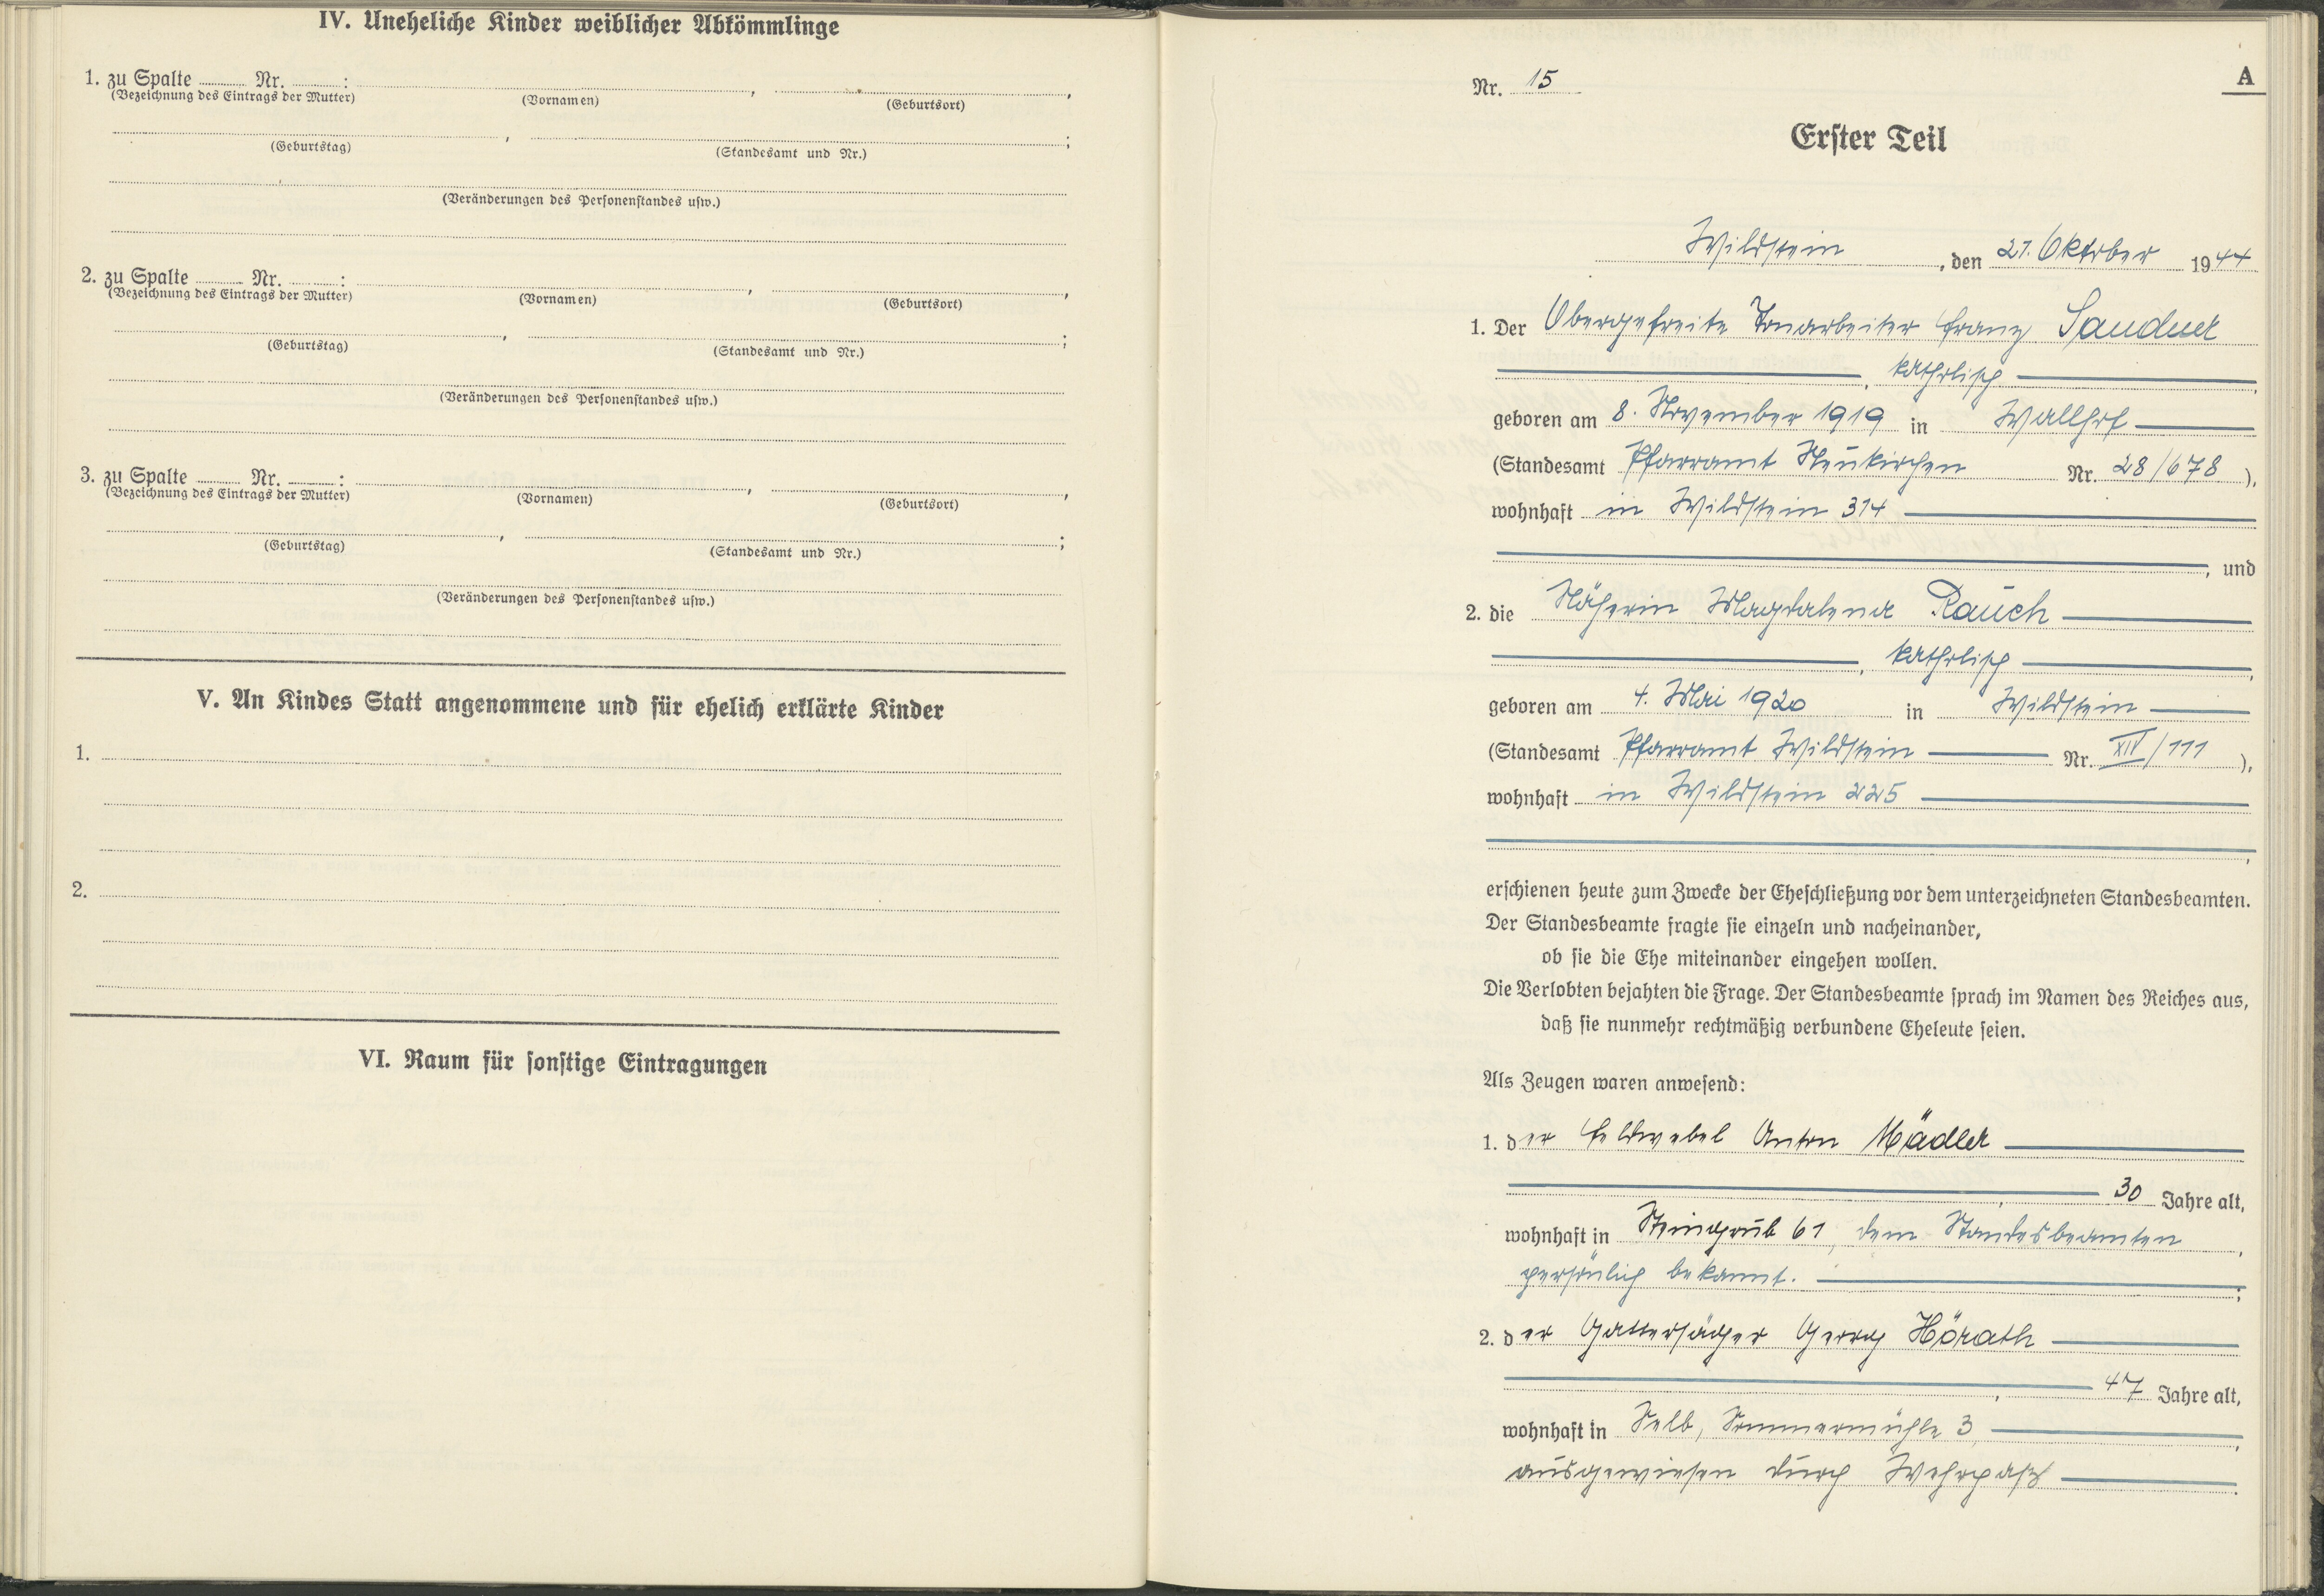 IV. Uneheliche Kinder weiblicher Abkömmlinge
1. zu Spalte ........ Nr. ........:
(Bezeichnung des Eintrags der Mutter) (Vornamen) (Geburtsort)
(Geburtstag) (Standesamt und Nr.)
(Veränderungen des Personenstandes usw.)
2. zu Spalte ........ Nr. ........:
(Bezeichnung des Eintrags der Mutter) (Vornamen) (Geburtsort)
(Geburtstag) (Standesamt und Nr.)
(Veränderungen des Personenstandes usw.)
3. zu Spalte ........ Nr. ........:
(Bezeichnung des Eintrags der Mutter) (Vornamen) (Geburtsort)
(Geburtstag) (Standesamt und Nr.)
(Veränderungen des Personenstandes usw.)
V. An Kindes Statt angenommene und für ehelich erklärte Kinder
1.
2.
VI. Raum für sonstige Eintragungen
A
Nr. 15
Erster Teil
Wildstein, den 21. Oktober 1944
1. Der Obergefreite Tonarbeiter Franz Sandner
, katholisch
geboren am 8. November 1919 in Wallhof
(Standesamt Pfarramt Neukirchen Nr. 28/678),
wohnhaft in Wildstein 314
, und
2. die Näherin Magdalena Rauch
, katholisch,
geboren am 4. Mai 1920 in Wildstein
(Standesamt Pfarramt Wildstein Nr. XIV/111),
wohnhaft in Wildstein 225
,
erschienen heute zum Zwecke der Eheschließung vor dem unterzeichneten Standesbeamten.
Der Standesbeamte fragte sie einzeln und nacheinander,
ob sie die Ehe miteinander eingehen wollen.
Die Verlobten bejahten die Frage. Der Standesbeamte sprach im Namen des Reiches aus,
daß sie nunmehr rechtmäßig verbundene Eheleute seien.
Als Zeugen waren anwesend:
1. der Feldwebel Anton Mädler
, 30 Jahre alt,
wohnhaft in Steingrub 61, dem Standesbeamten,
persönlich bekannt.;
2. der Gattersäger Georg Hörath
, 47 Jahre alt,
wohnhaft in Selb, Sommermühle 3,
ausgewiesen durch Wehrpaß.